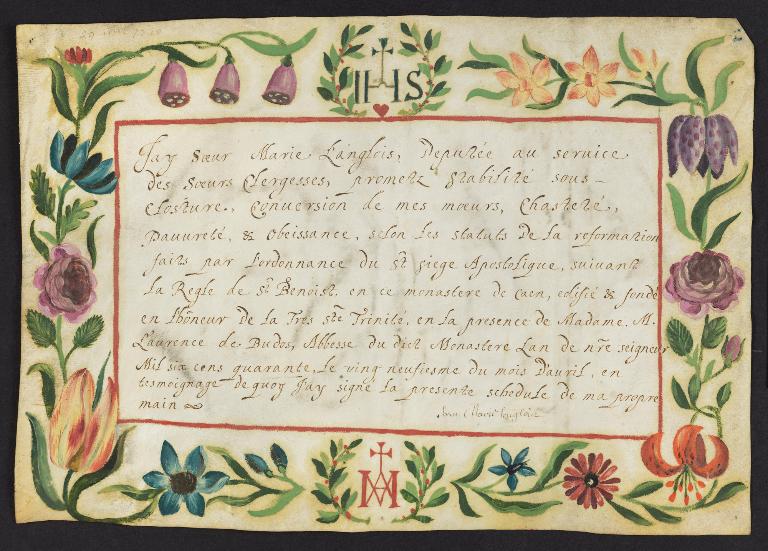 IHS
Jay Sœur Marie Langlois, Deputée au service
des Sœurs Clergesses, prometz stabilité sous
Closture, Conuersion de mes mœurs, Chasteté,
Pauureté, & Obeissance, selon les statuts de la reformation
faits par lordonnance du St siege Apostolique, suiuant
la Regle de St Benoist, en ce monastere de Caen, edifié & fondé
en lhõneur de la Tres ste Trinité, en la presence de Madame. M.
Laurence de Budos, Abbesse du dict Monastere Lan de nre seigneur
Mil six cens quarante, le ving neufiesme du mois Dauril, en
tesmoignage de quoy Jay signé la presente schedule de ma propre
main
Marie Langlois
MA